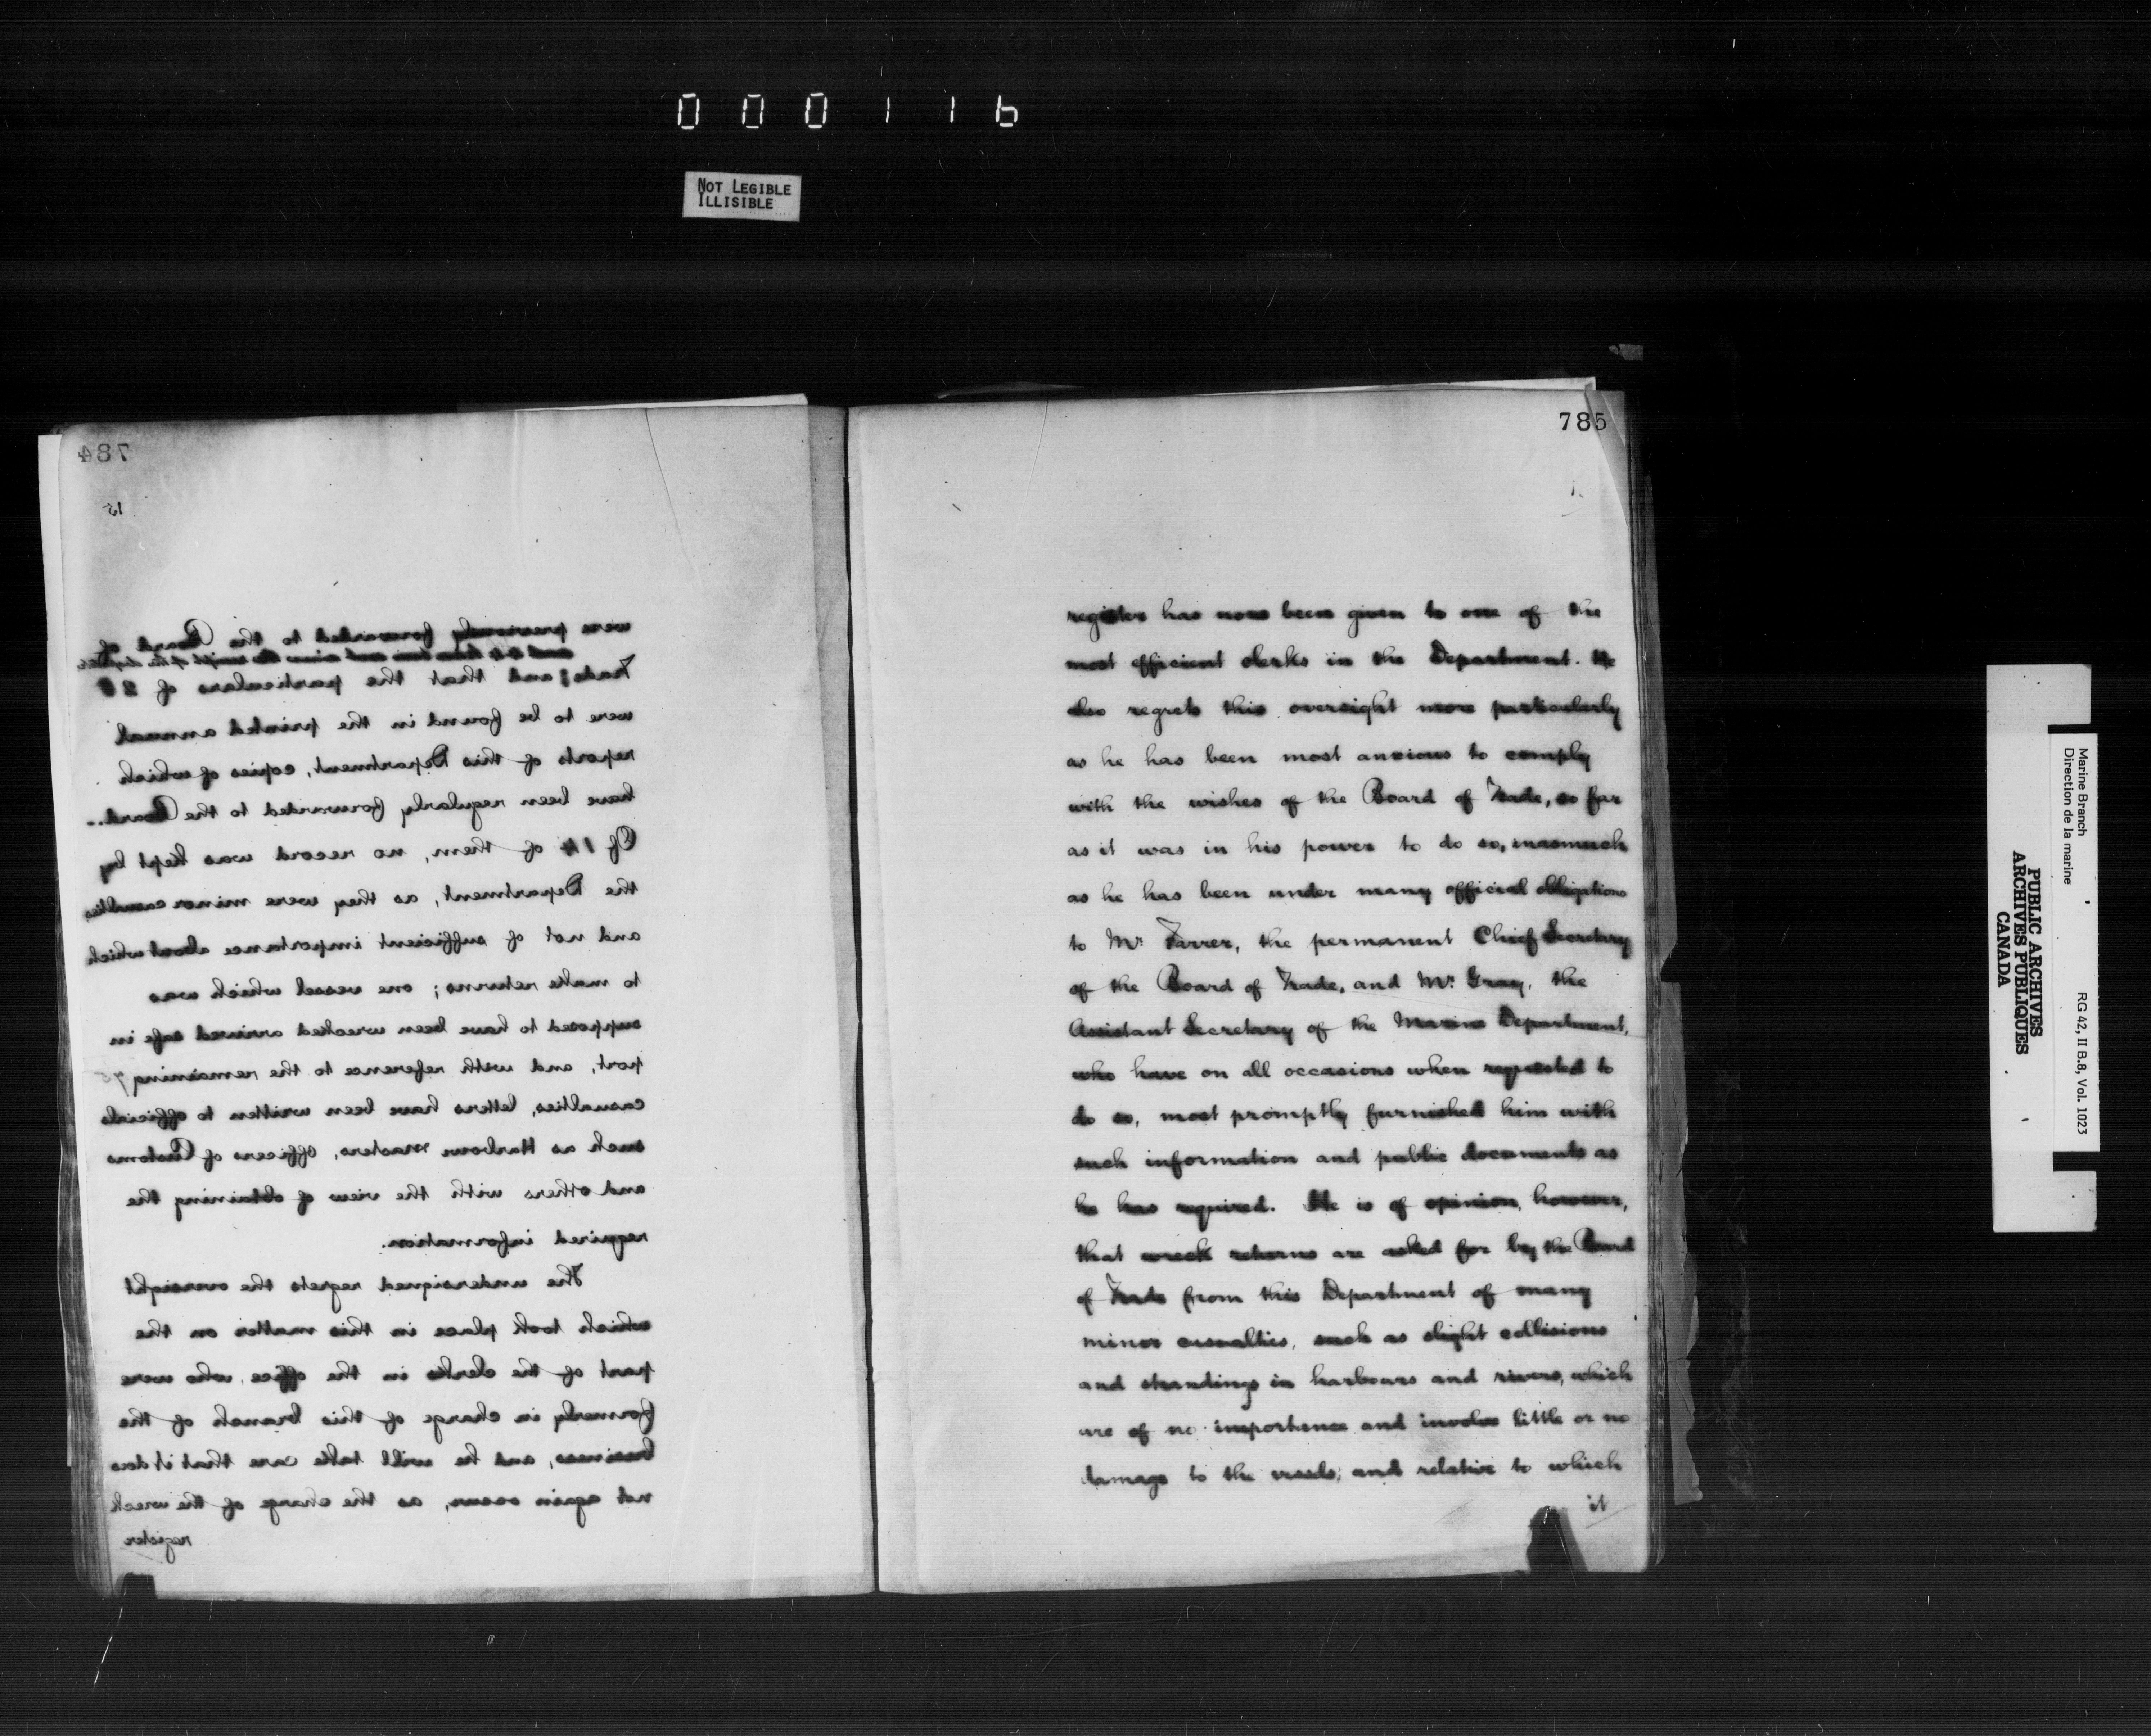 000116
NOT LEGIBLE
ILLISIBLE
784
15
were previously forwarded to the Board of
Trade; and that the particulars of
were to be found in the printed annual
reports of this Department, copies of which
have been regularly forwarded to the Board.
Of 14 of them, no record was kept by
the Department, as they were minor casualties
and not of sufficient importance about which
to make returns; one vessel which was
supposed to have been wrecked arrived safe in
port, and with reference to the remaining 75
casualties, letters have been written to officials
such as Harbour Masters, officers of Customs
and others with the view of obtaining the
required information.
The undersigned regrets the oversight
which took place in this matter on the
part of the clerks in the office, who were
formerly in charge of this branch of the
business, and he will take care that it does
not again occur, as the charge of the wreck
register
785
register has now been given to one of the
most efficient clerks in the Department. He
also regrets this oversight more particularly
as he has been most anxious to comply
with the wishes of the Board of Trade, so far
as it was in his power to do so, inasmuch
as he has been under many official obligations
to Mr. Farrer, the permanent Chief Secretary
of the Board of Trade, and Mr. Gray, the
Assistant Secretary of the Marine Department,
who have on all occasions when requested to
do so, most promptly furnished him with
such information and public documents as
he has required. He is of opinion, however,
that wreck returns are asked for by the Board
of Trade from this Department of many
minor casualties, such as slight collisions
and strandings in harbours and rivers, which
are of no importance and involve little or no
damage to the vessels, and relative to which
it
Marine Branch
Direction de la marine
RG 42, II B.8, Vol. 1023
PUBLIC ARCHIVES
ARCHIVES PUBLIQUES
CANADA